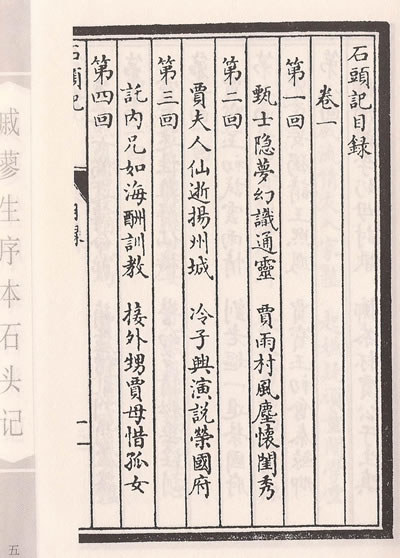 石頭記目錄
卷一
第一回
甄士隐夢幻識通靈 賈雨村風塵懷閨秀
第二回
賈夫人仙逝揚州城 冷子興演說榮國府
第三回
託內兄如海酬訓教 接外甥賈母惜孤女
第四回
石頭記 目錄 一
戚蓼生序本石头记
五